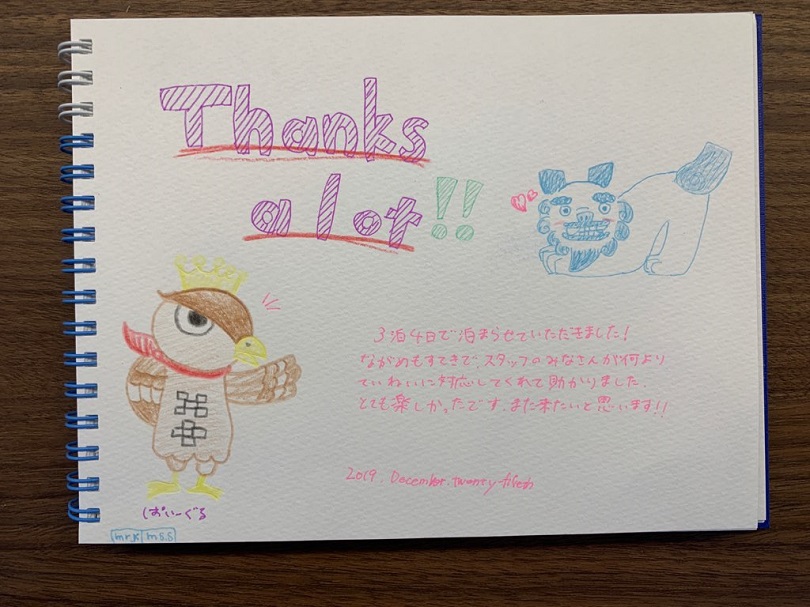 Thanks
a lot!!
3泊4日で泊まらせていただきました!
ながめもすてきで、スタッフのみなさんが何より
ていねいに対応してくれて助かりました。
とても楽しかったです。また来たいと思います!!
2019. December. twenty-fifth
しばいーぐる
mr.K m s.s